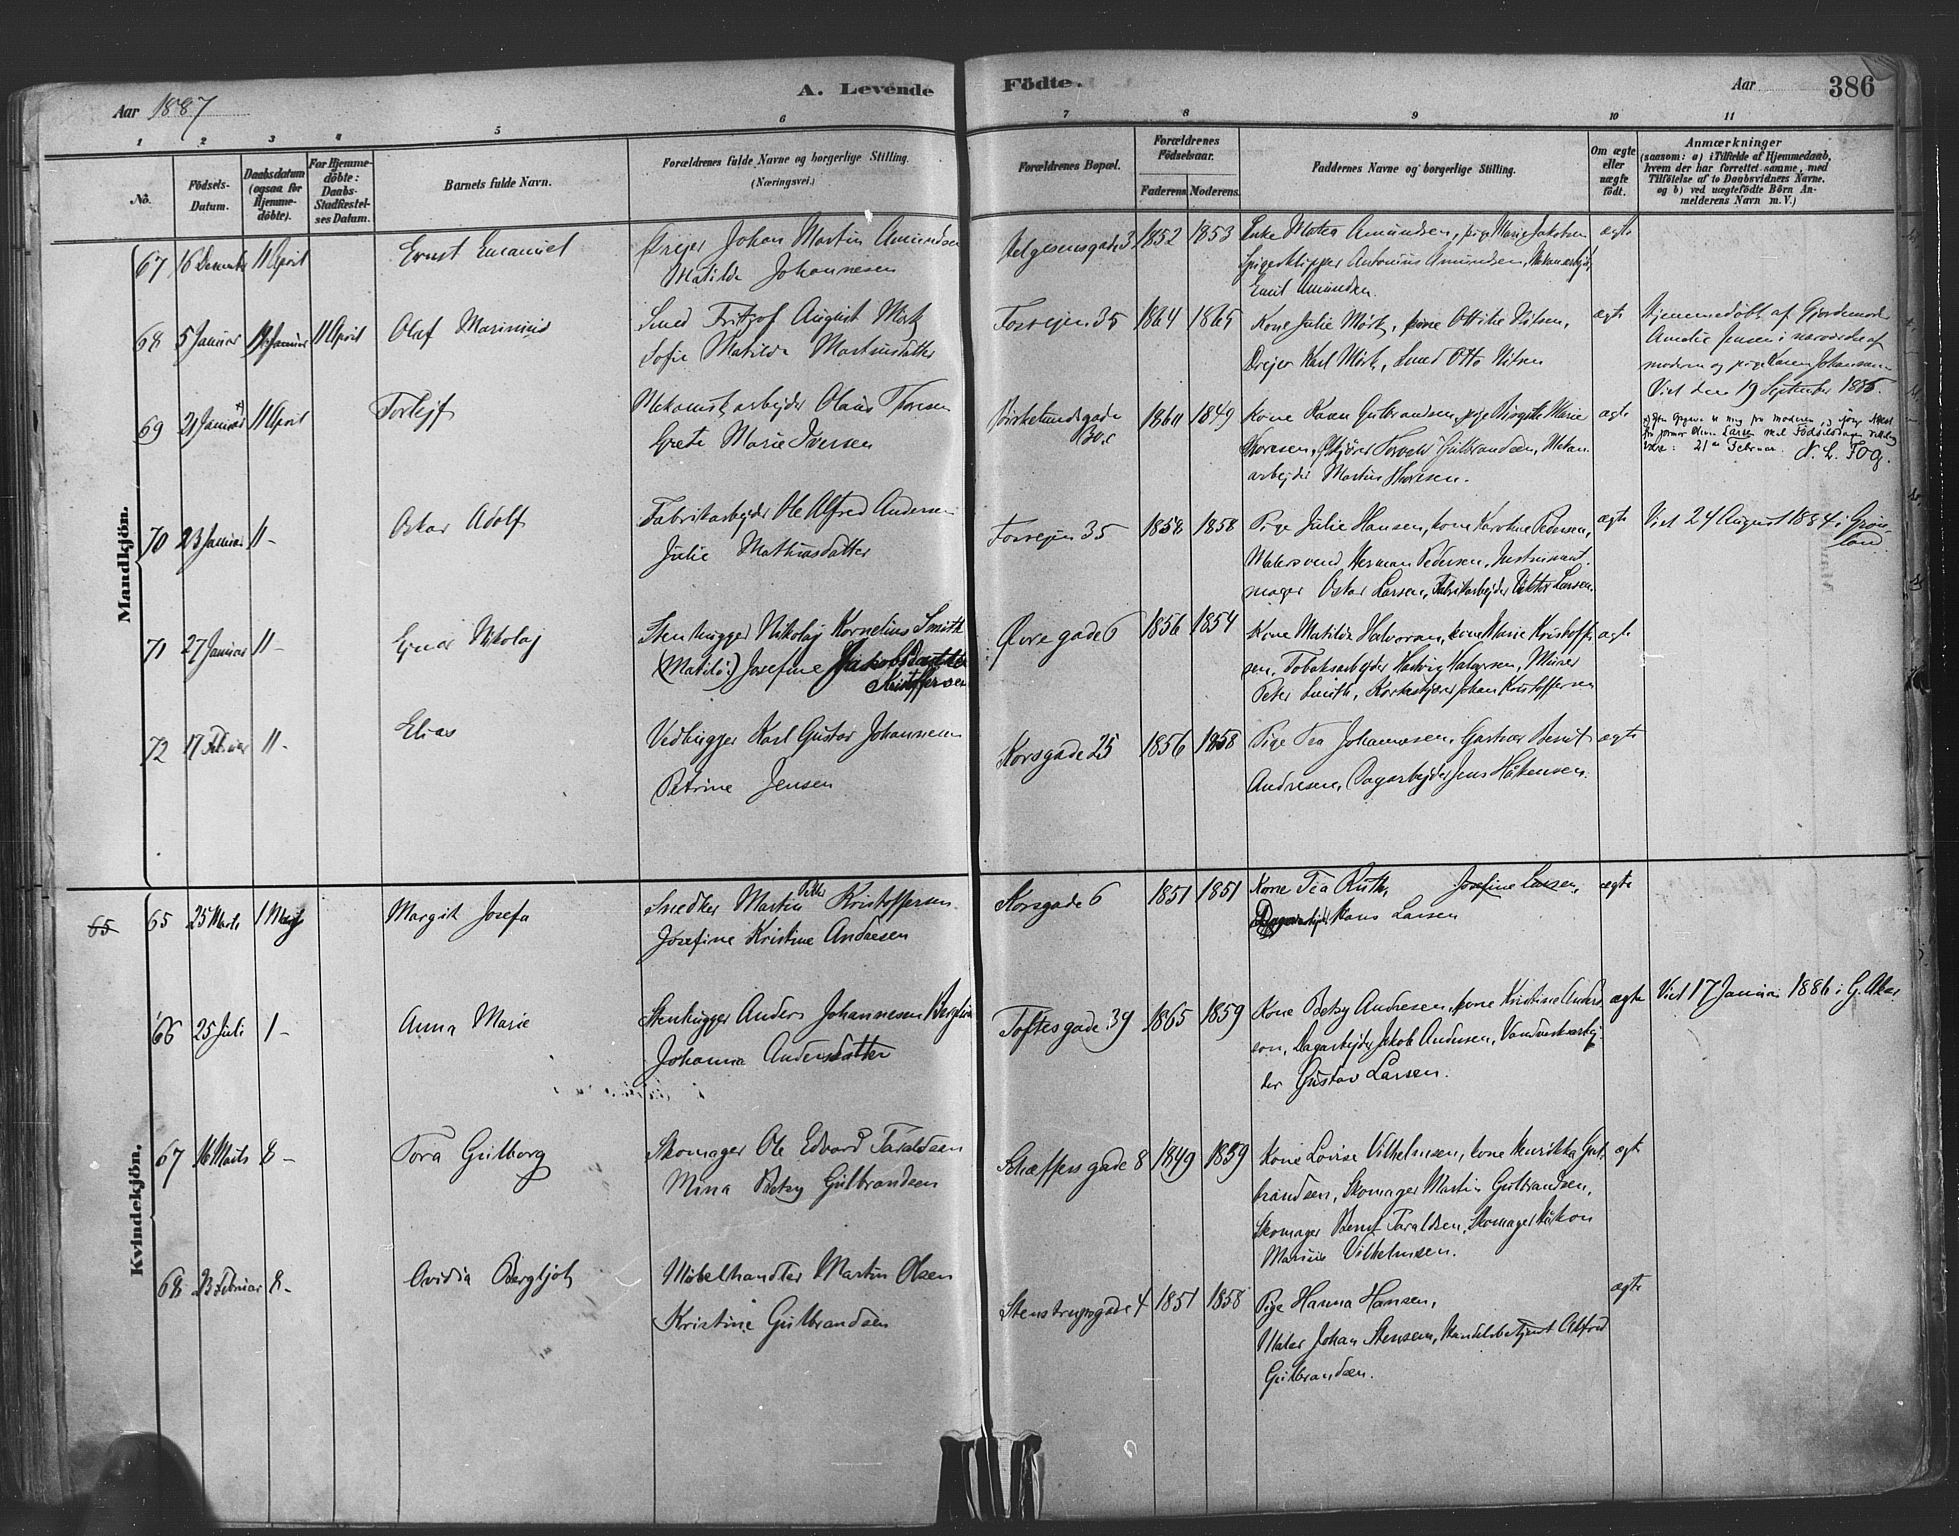 Aar 1887
A. Levende Födte.
Aar
386
1 2 3 4 5 6 7 8 9 10 11
No.
Födsels-Datum.
Daabsdatum (ogsaa for Hjemme-döbte).
For Hjemme-döbte: Daabs-Stadfæstel-ses Datum.
Barnets fulde Navn.
Forældrenes fulde Navne og borgerlige Stilling. (Næringsvei.)
Forældrenes Bopæl.
Forældrenes Födselsaar.
Faderens. Moderens.
Faddernes Navne og borgerlige Stilling.
Om ægte eller uægte födt.
Anmærkninger
(saasom: a) i Tilfælde af Hjemmedaab, hvem der har forrettet samme, med Tilföielse af to Daabsvidners Navne. og b) ved uægtefödte Börn An-melderens Navn m. V.)
Mandkjön.
67 16 Decembr 11 April Ernst Emanuel Drejer Johan Martin Amundsen Helgesensgade 3 1852 1853 Enke Mathea Amundsen, pige Marie Jakobsen ægte
Matilde Johannesen Spigerklipper Antonius Amundsen, Mekanarbejd.
Emil Amundsen.
68 5 Januar 19 Januar 11 April Olaf Marinius Smed Fritjof August Mörk Fossvejen 35 1864 1865 Kone Julie Mörk, kone Ottilie Nilsen, ægte Hjemmedöbt af Gjordemoder
Sofie Matilde Martinsdatter Drejer Karl Mörk, Smed Otto Nilsen Amalie Jensen i nærværelse af
moderen og pige Karen Johansen
Viet den 19 September 1886.
69 21 Januar 11 April Torlejf Mekanisk arbejder Olaus Thoresen Birkelundsgade 1860 1849 Kone Karen Gulbrandsen, pige Birgitte Marie ægte
Grete Marie Iversen Thoresen, Gulbrandsen, Mekan.
arbejder Martin Thoresen.
21de Februar. N. L. Fog.
70 23 Januar 11 - Oskar Adolf Fabrikarbejder Ole Alfred Andersen Fossvejen 35 1858 1858 Pige Julie Hansen, kone Karoline Pedersen, ægte Viet 24 August 1884 i Grön-
Julie Mathiasdatter Malersvend Herman Pedersen, Instrument land.
mager Oskar Larsen, Fabrikarbejder Viktor Larsen.
71 27 Januar 11 - Ejnar Nikolaj Stenhugger Nikolaj Kornelius Smith Övregade 6 1856 1854 Kone Matilde Halvorsen, kone Marie Kristoffer ægte
(Matilde) Josefine Jakobsdatter sen, Tobaksarbejder Hartvig Halvorsen, Murer
Kristoffersen Peter Smith, Korkeskjærer Johan Kristoffersen
72 17 Februar 11 - Elias Vedhugger Karl Gustav Johannesen Korsgade 25 1856 1858 Pige Tea Johannesen, Gartner Bernt ægte
Petrine Jensen Andresen, Dagarbejder Jens Håkensen.
Kvindekjön.
65 65 25 Marts 1 Maj Margit Josefa Snedker Martin Peter Kristoffersen Korsgade 6 1851 1851 Kone Tea Ruth, Josefine Larsen, ægte
Josefine Kristine Andresen Dagarbejder Hans Larsen
66 25 Juli 1 - Anna Marie Stenhugger Anders Johannesen Berglin Toftesgade 39 1865 1859 Kone Betsy Andresen, kone Kristine Anders ægte Viet 17 Januar 1886 i G. Aker
Johanna Andersdatter son, Dagarbejder Jakob Andersen, Vandværksarbej-
der Gustav Larsen.
67 16 Marts 8 - Tora Gulborg Skomager Ole Edvard Taraldsen Schæffersgade 8 1849 1859 Kone Lovise Vilhelmsen, kone Henrikka Gul- ægte
Mina Betzy Gulbrandsen brandsen, Skomager Martin Gulbrandsen,
Skomager Bernt Taraldsen, Skomager Håkon
Marius Vilhelmsen.
68 23 Februar 8 - Ovidia Bergljot Möbelhandler Martin Olsen Stenstrupsgade 4 1851 1858 Pige Hanna Hansen, ægte
Kristine Gulbrandsen Maler Johan Stensen, Handelsbetjent Alfred
Gulbrandsen.